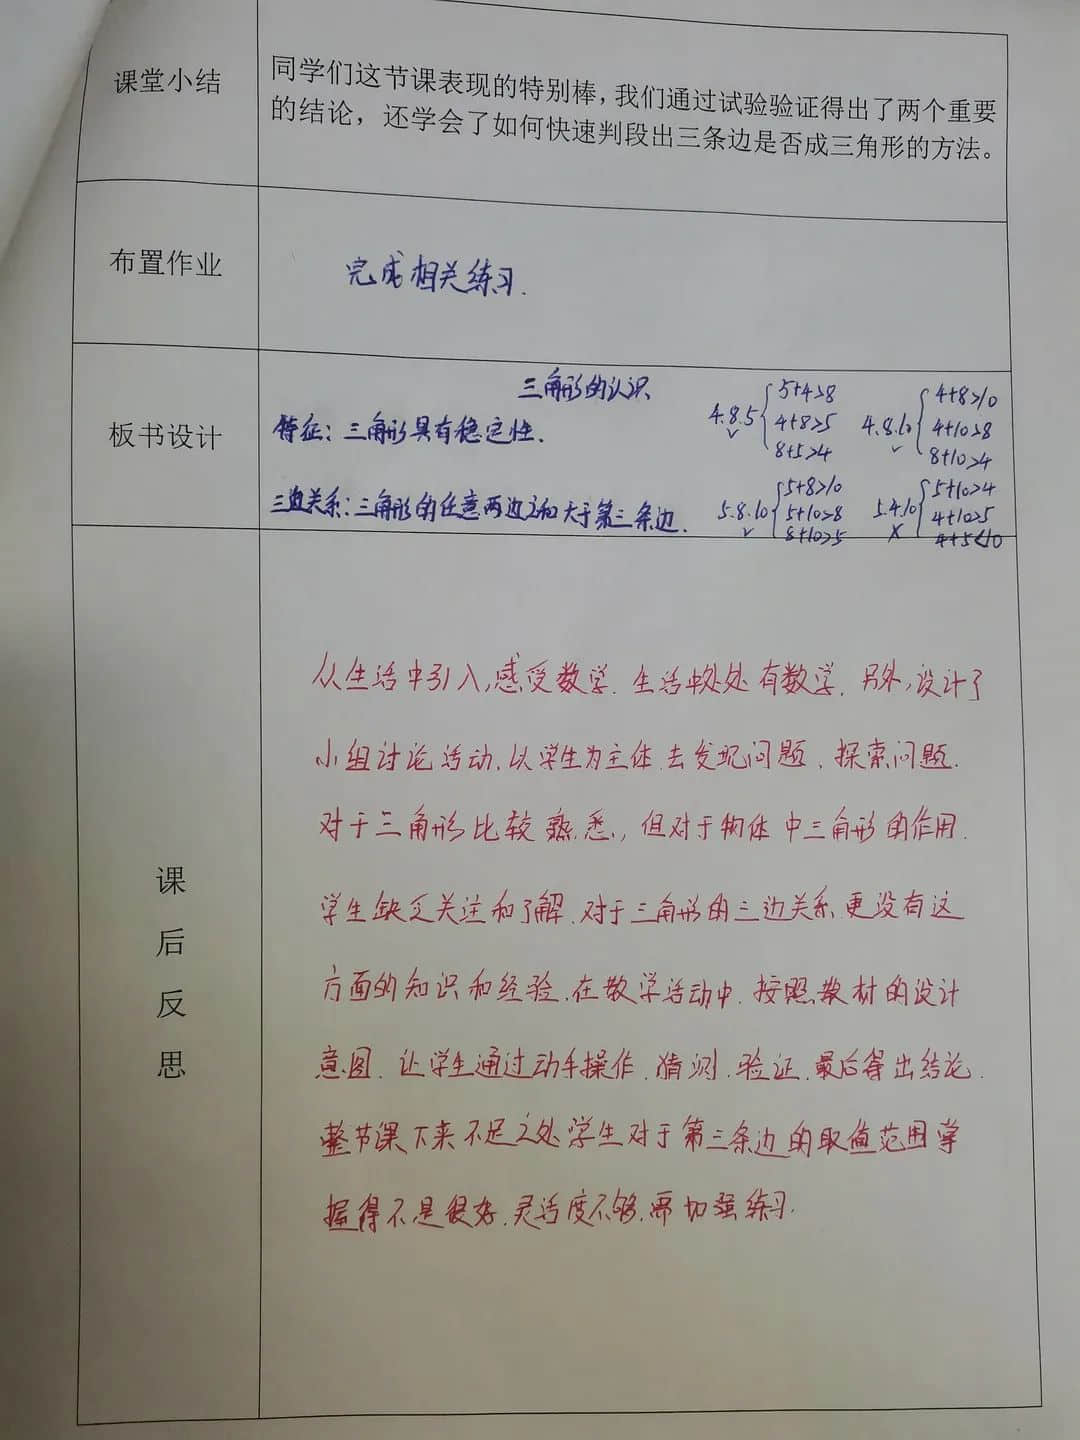 课堂小结
同学们这节课表现的特别棒，我们通过试验验证得出了两个重要
的结论，还学会了如何快速判段出三条边是否成三角形的方法。
布置作业
完成相关练习.
板书设计
三角形的认识
特征：三角形具有稳定性.
三边关系：三角形的任意两边之和大于第三条边.
4.8.5
✓
5+4>8
4+8>5
8+5>4
4.8.10
✓
4+8>10
4+10>8
8+10>4
5.8.10
✓
5+8>10
5+10>8
8+10>5
5.4.10
✗
5+10>4
4+10>5
4+5<10
课后反思
从生活中引入,感受数学.生活中处处有数学.另外,设计了
小组讨论活动.以学生为主体.去发现问题.探索问题.
对于三角形比较熟悉,但对于物体中三角形的作用.
学生缺乏关注和了解.对于三角形的三边关系更没有这
方面的知识和经验.在教学活动中.按照教材的设计
意图.让学生通过动手操作.猜测.验证.最后得出结论.
整节课下来不足之处学生对于第三条边的取值范围掌
握得不是很好.灵活度不够.需加强练习.